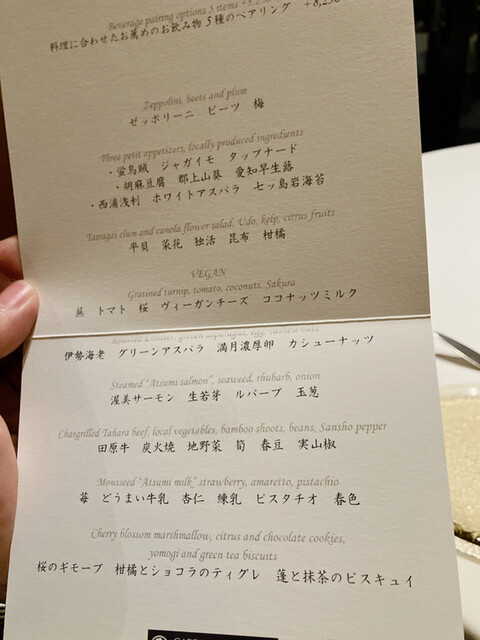 Beverage pairing options 5 items +8,250
料理に合わせたお薦めのお飲み物 5 種のペアリング +8,250
Zeppolini, beets and plum
ゼッポリーニ ビーツ 梅
Three petit appetizers, locally produced ingredients
・蛍烏賊 ジャガイモ タップナード
・胡麻豆腐 郡上山葵 愛知早生蕗
・西浦浅利 ホワイトアスパラ 七ッ島岩海苔
Tairagai clum and canola flower salad, Udo, kelp, citrus fruits
平貝 菜花 独活 昆布 柑橘
VEGAN
Gratined turnip, tomato, coconuts, Sakura
蕪 トマト 桜 ヴィーガンチーズ ココナッツミルク
green asparagus, egg, cashew nuts
伊勢海老 グリーンアスパラ 満月濃厚卵 カシューナッツ
Steamed "Atsumi salmon", seaweed, rhubarb, onion
渥美サーモン 生若芽 ルバーブ 玉葱
Chargrilled Tahara beef, local vegetables, bamboo shoots, beans, Sansho pepper
田原牛 炭火焼 地野菜 筍 春豆 実山椒
Mousseed "Atsumi milk" strawberry, amaretto, pistachio
苺 どうまい牛乳 杏仁 練乳 ピスタチオ 春色
Cherry blossom marshmallow, citrus and chocolate cookies,
yomogi and green tea biscuits
桜のギモーブ 柑橘とショコラのティグレ 蓬と抹茶のビスキュイ